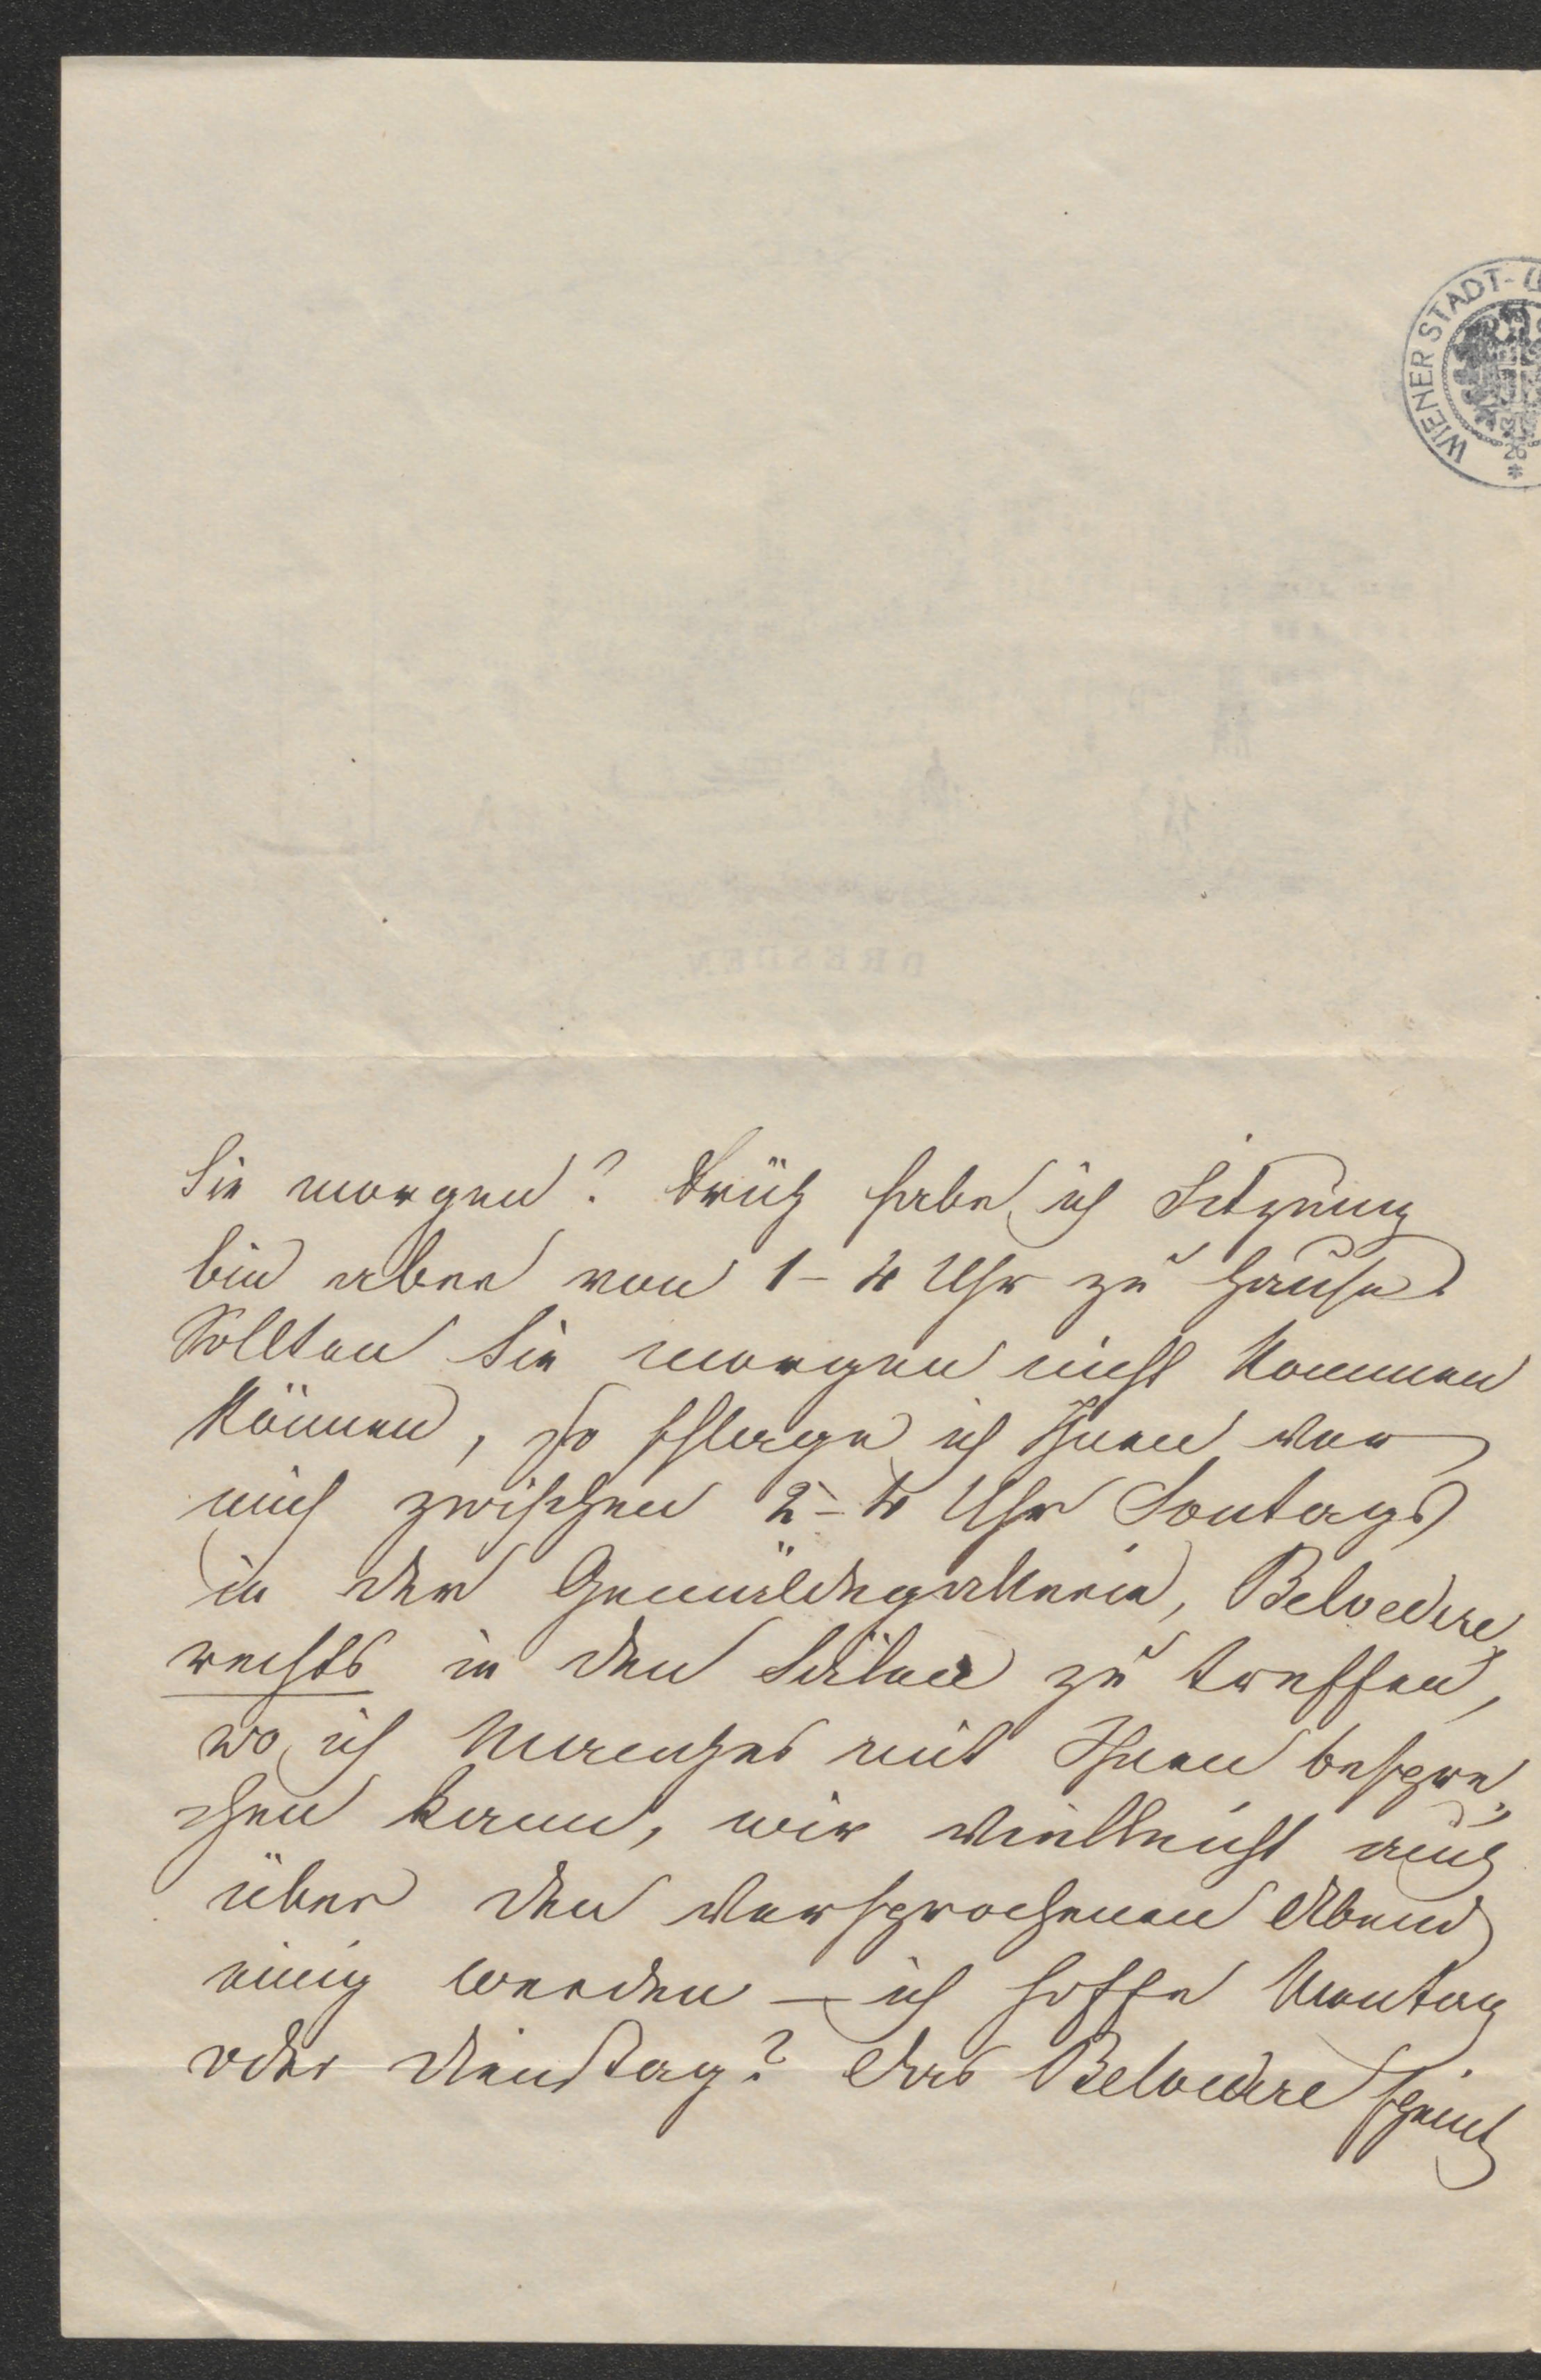 WIENER STADT-
26
DRESDEN
Sie morgen? Früh habe ich Sitzung
bin aber von 1–4 Uhr zu Hause.
Sollten Sie morgen nicht kommen
können, so schlage ich Ihnen vor
mich zwischen 2–4 Uhr Sontags
in der Gemäldegallerie, Belvedere,
rechts in den Sälen zu treffen,
wo ich Manches mit Ihnen bespre-
chen kann, wir vielleicht auch
über den versprochenen Abend
einig werden – ich hoffe Montag
oder Dienstag? Das Belvedere scheint